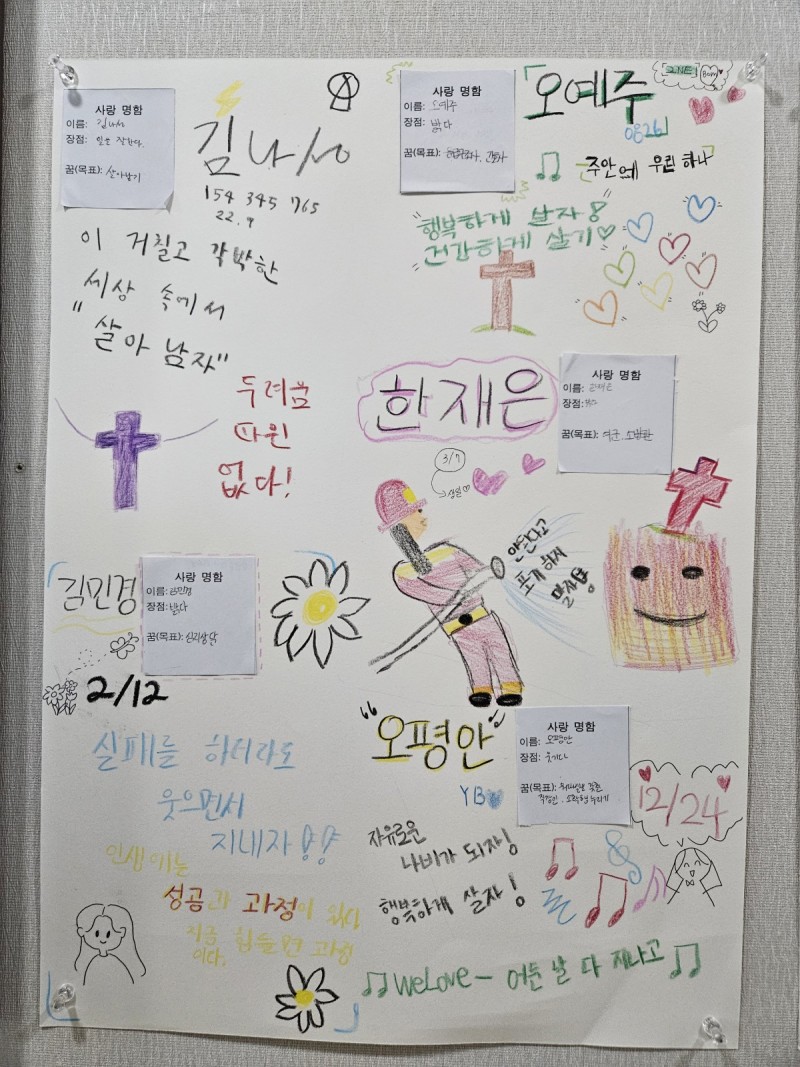 사랑 명함
이름: 김나서
장점: 잠은 잘잔다.
꿈(목표): 살아남기
김나서
154 345 765
22. 9
이 거칠고 각박한
세상 속에서
"살아 남자"
두려움
따윈
없다!
사랑 명함
이름: 오예주
장점: 밝다
꿈(목표): 간호사
오예주
0826
2NE1
Bom
주안에 우린 하나
"행복하게 살자!
건강하게 살기♡"
한재은
사랑 명함
이름: 한재은
장점:
꿈(목표): 여군, 소방관
3/7
생일♡
안된다고
포기하지
말자!
김민경
사랑 명함
이름: 김민경
장점: 밝다
꿈(목표): 심리상담
2/12
실패를 하더라도
웃으면서
지내자!!
인생에는
성공과 과정이 있지
지금 힘들면 과정
이다.
"오평안"
YB
사랑 명함
이름: 오평안
장점: 웃기다
꿈(목표):
직장인, 소확행 누리기
12/24
자유로운
나비가 되자!
행복하게 살자!
WeLove- 어둔 날 다 지나고